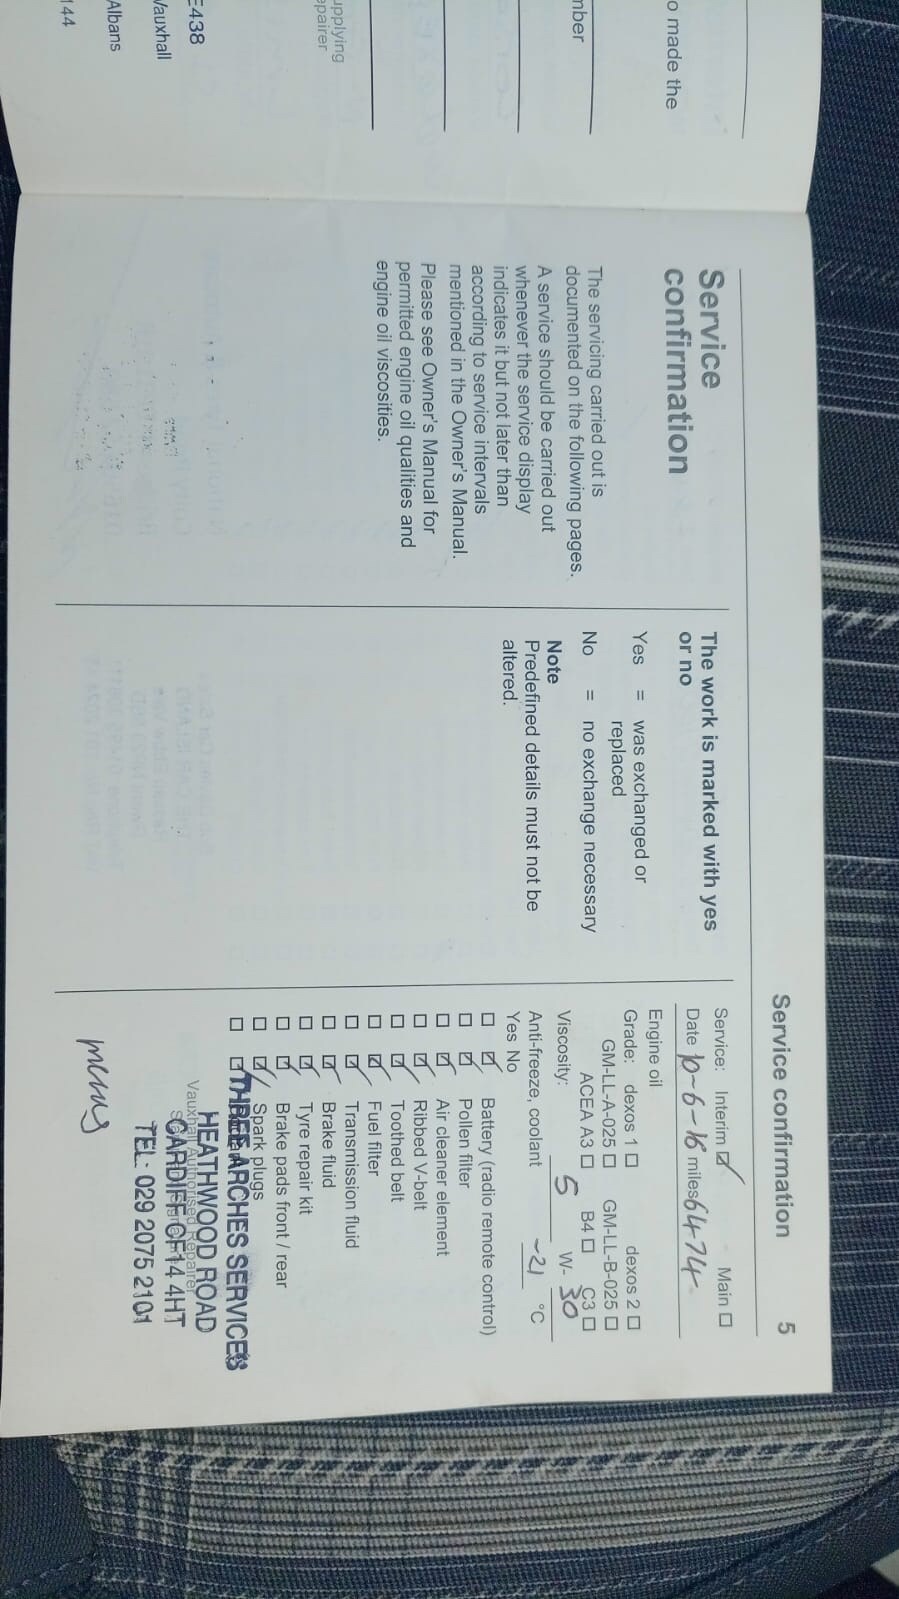 o made the
mber
upplying
epairer
E438
Vauxhall
Albans
144
Service
confirmation
The servicing carried out is
documented on the following pages.
A service should be carried out
whenever the service display
indicates it but not later than
according to service intervals
mentioned in the Owner's Manual.
Please see Owner's Manual for
permitted engine oil qualities and
engine oil viscosities.
The work is marked with yes
or no
Yes = was exchanged or
replaced
No = no exchange necessary
Note
Predefined details must not be
altered.
Service confirmation 5
Service: Interim ☑ Main ☐
Date 10-6-16 miles 6474
Engine oil
Grade: dexos 1 ☐ dexos 2 ☐
GM-LL-A-025 ☐ GM-LL-B-025 ☐
ACEA A3 ☐ B4 ☐ C3 ☐
Viscosity: 5 W- 30
Anti-freeze, coolant -21 °C
Yes No
☐ ☑ Battery (radio remote control)
☐ ☑ Pollen filter
☐ ☑ Air cleaner element
☐ ☑ Ribbed V-belt
☐ ☑ Toothed belt
☐ ☑ Fuel filter
☐ ☑ Transmission fluid
☐ ☑ Brake fluid
☐ ☑ Tyre repair kit
☐ ☑ Brake pads front / rear
☐ ☑ Spark plugs
☐ ☑
THREE ARCHES SERVICES
HEATHWOOD ROAD
Vauxhall Authorised Repairer
CARDIFF CF14 4HT
TEL: 029 2075 2101